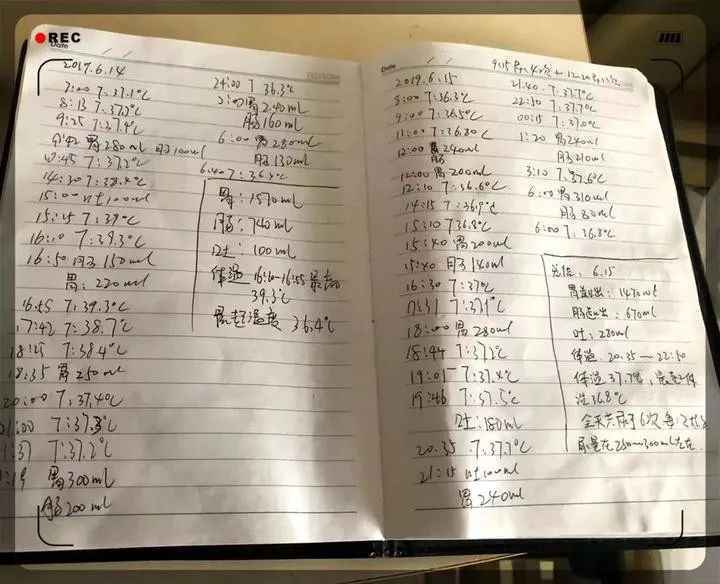 REC
Date
2019.6.14
7:00 T:37.1℃
8:13 T:37.3℃
9:25 T:37.4℃
胃280ml 肠100ml
T:37.2℃
14:30 T:38.4℃
15:00 吐100ml
15:15 T:39℃
16:10 T:39.3℃
16:50 肠150ml
胃:220ml
16:55 T:39.3℃
17:42 T:38.7℃
18:25 T:38.4℃
18:35 胃250ml
20:00 T:37.4℃
21:00 T:37.3℃
T:37.2℃
胃300ml
肠200ml
24:00 T 36.3℃
2:00 胃240ml
肠160ml
6:00 胃280ml
肠130ml
6:40 T:36.4℃
胃:1570ml
肠:740ml
吐:100ml
体温 16:10-16:55 最高
39.3℃
最起温度 36.4℃
Date
2019.6.15
8:00 T:36.3℃
9:00 T:36.5℃
11:00 T:36.80℃
12:00 胃240ml
肠
胃200ml
12:10 T:36.6℃
14:15 T:36.9℃
15:10 T 36.8℃
15:40 胃200ml
15:40 肠140ml
16:30 T:37℃
17:31 T:37.1℃
18:00 胃280ml
18:44 T:37.3℃
19:01 T:37.4℃
19:46 T:37.5℃
吐:180ml
20:35 T:37.7℃
21:15 吐100ml
胃240ml
21:40 T:37.7℃
22:50 T:37.7℃
00:15 T:37.0℃
1:20 胃240ml
肠210ml
3:10 T:37.6℃
6:00 胃310ml
肠80ml
6:00 T:36.8℃
总结:6.15
胃造出:1470ml
肠造出:670ml
吐:280ml
体温 20:35—22:50
体温37.7℃,最起体
温36.8℃
全天共尿了6次 每次
尿量在250ml—300ml左右